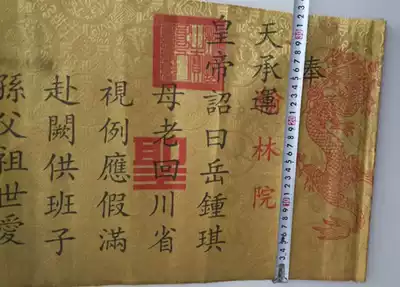 奉
天承運
林院
皇帝詔曰岳鍾琪
母老回川省
聖
視例應假滿
赴闕供班子
孫父祖世愛